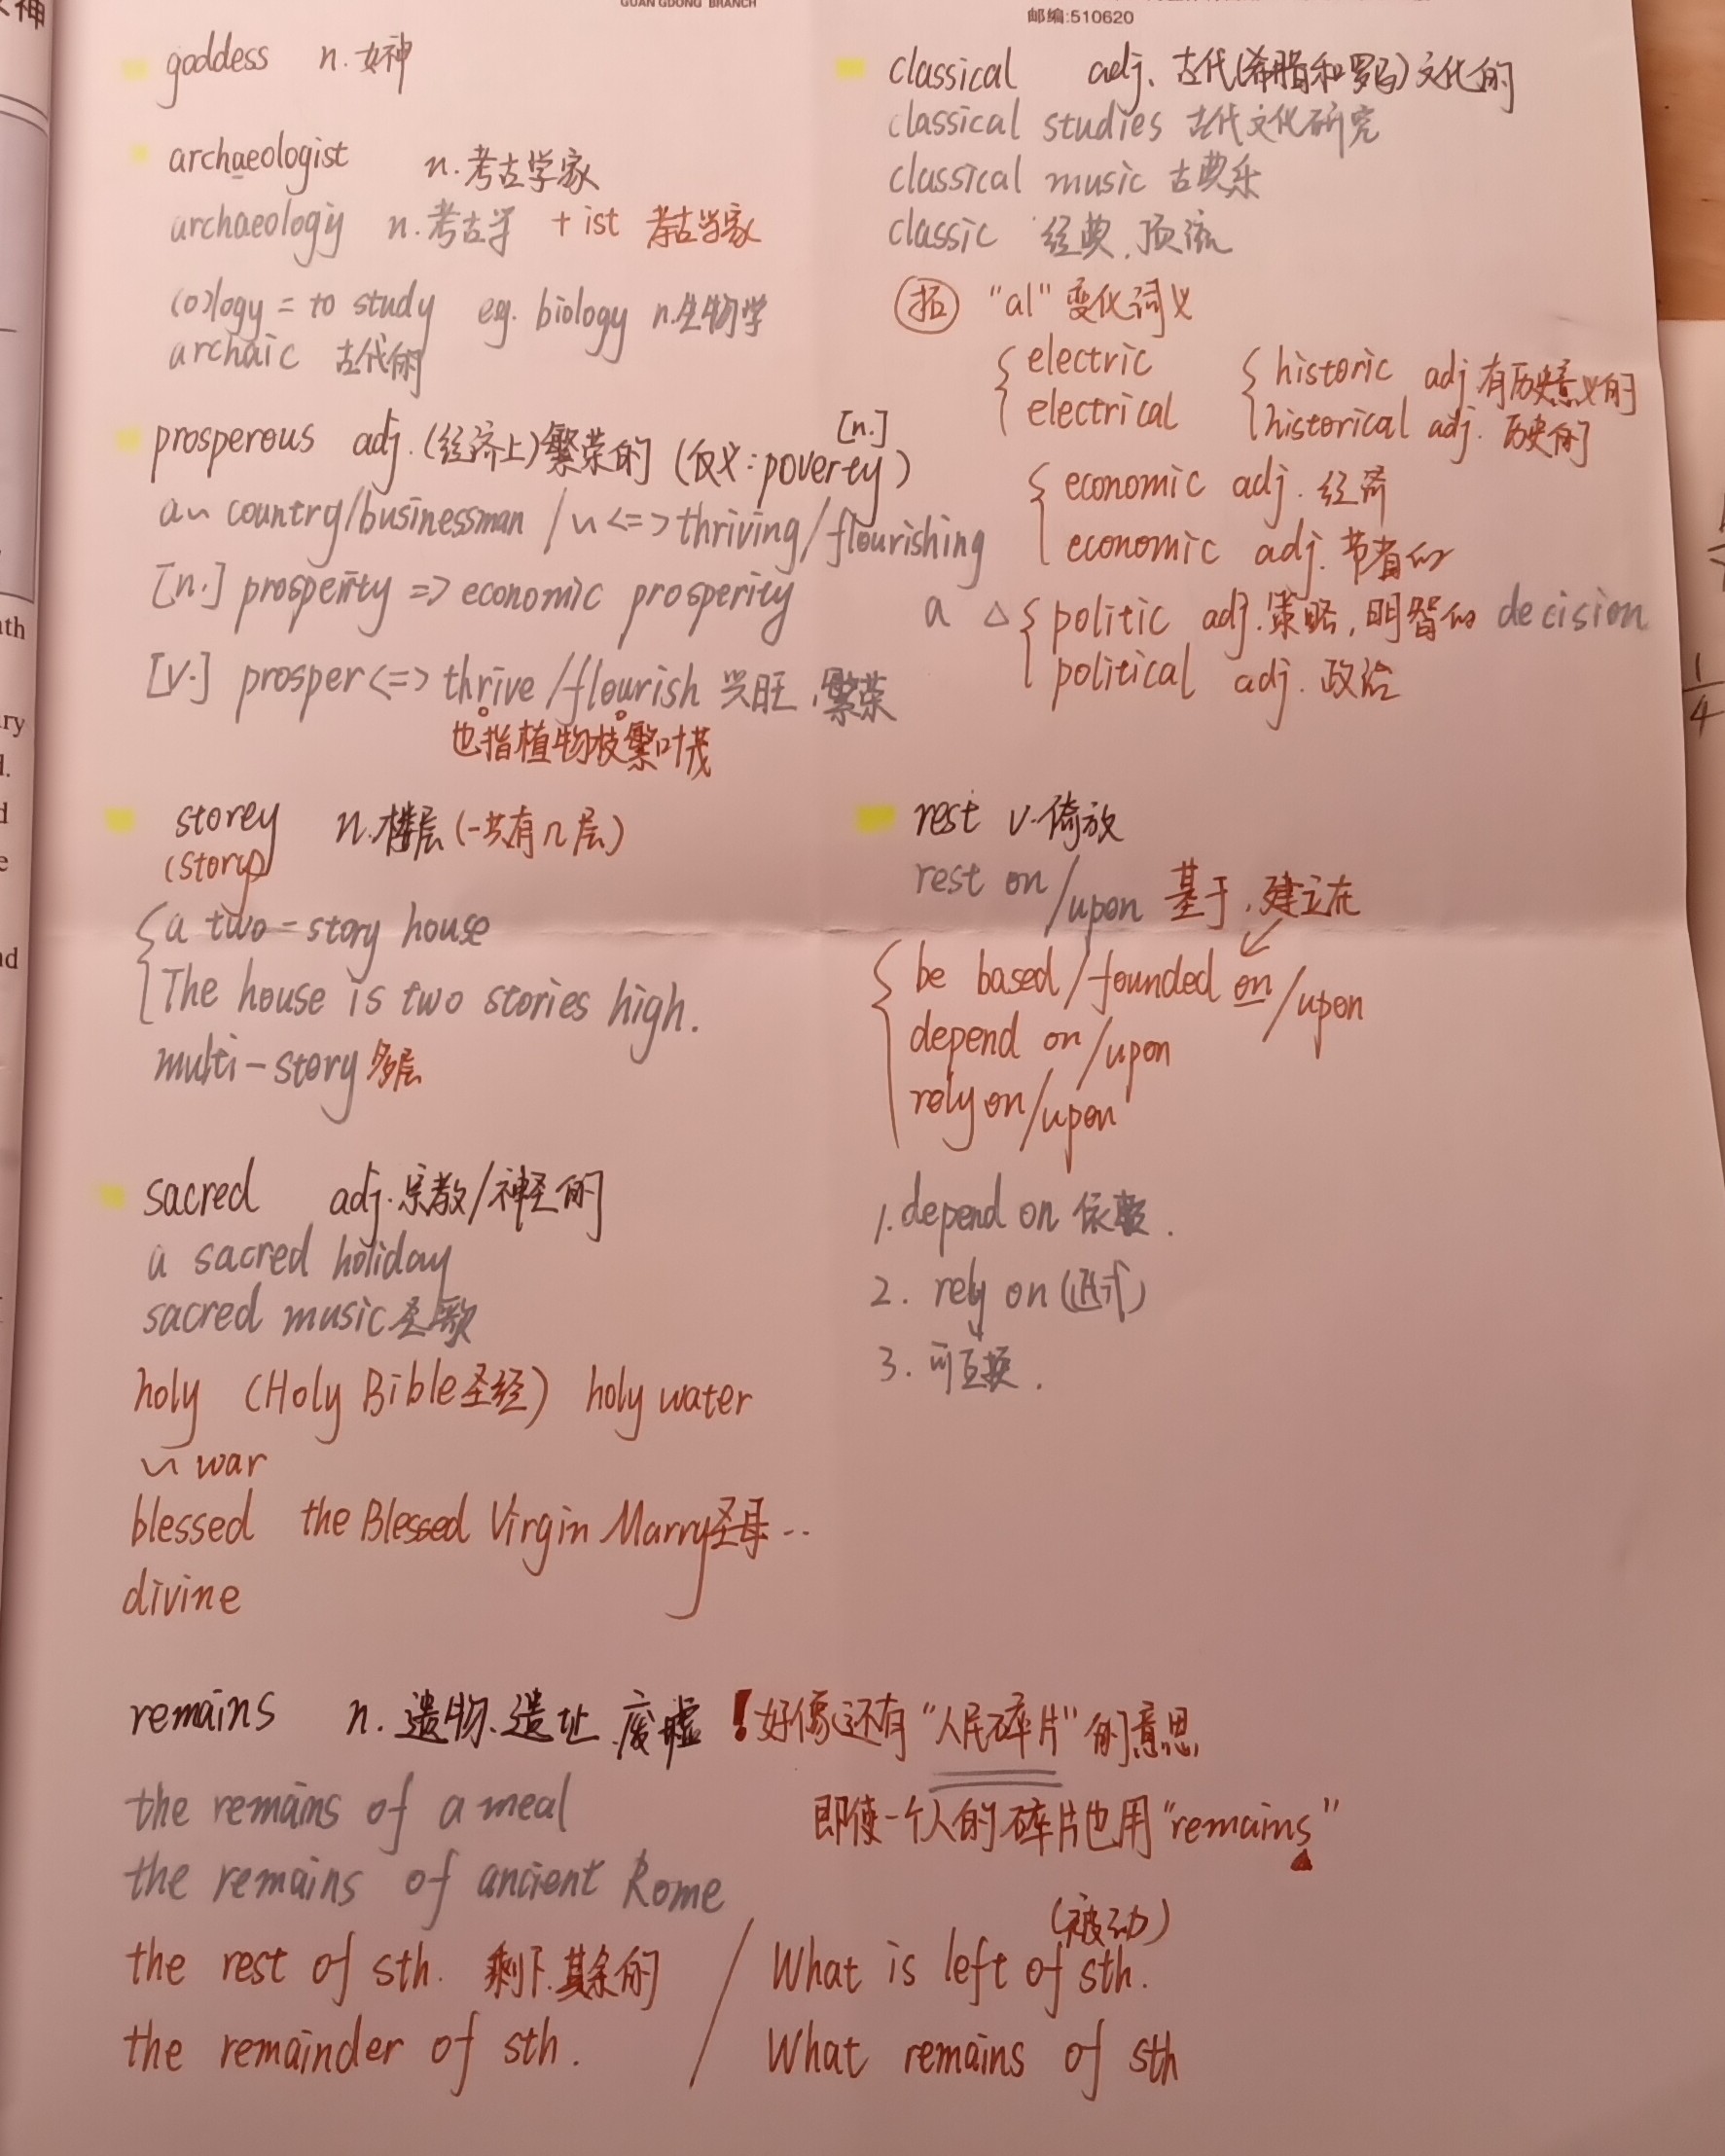 GUANGDONG BRANCH
邮编:510620
goddess n. 女神
archaeologist n. 考古学家
archaeology n. 考古学 + ist 考古学家
(o)logy = to study eg. biology n. 生物学
archaic 古代的
prosperous adj. (经济上)繁荣的 (反义: poverty) [n.]
a ~ country/businessman / ~ <=> thriving/flourishing
[n.] prosperity => economic prosperity
[v.] prosper <=> thrive/flourish 兴旺, 繁荣
也指植物枝繁叶茂
storey n. 楼层 (一共有几层)
(story)
a two-story house
The house is two stories high.
multi-story 多层
sacred adj. 宗教/神圣的
a sacred holiday
sacred music 圣歌
holy (Holy Bible 圣经) holy water
~ war
blessed the Blessed Virgin Marry 圣母..
divine
classical adj. 古代(希腊和罗马)文化的
classical studies 古代文化研究
classical music 古典乐
classic 经典, 顶流
拓 "al" 变化词义
electric
electrical
historic adj 有历史意义的
historical adj. 历史的
economic adj. 经济
economic adj. 节省的
a △ politic adj. 策略, 明智的 decision
political adj. 政治
rest v. 倚放
rest on/upon 基于, 建立在
be based/founded on/upon
depend on/upon
rely on/upon
1. depend on 依靠.
2. rely on (正式)
3. 可互换.
remains n. 遗物、遗址、废墟 ! 好像还有“人民碎片”的意思
the remains of a meal
即使一个人的碎片也用“remains”
the remains of ancient Rome
the rest of sth. 剩下.其余的 / What is left of sth. (被动)
the remainder of sth. / What remains of sth